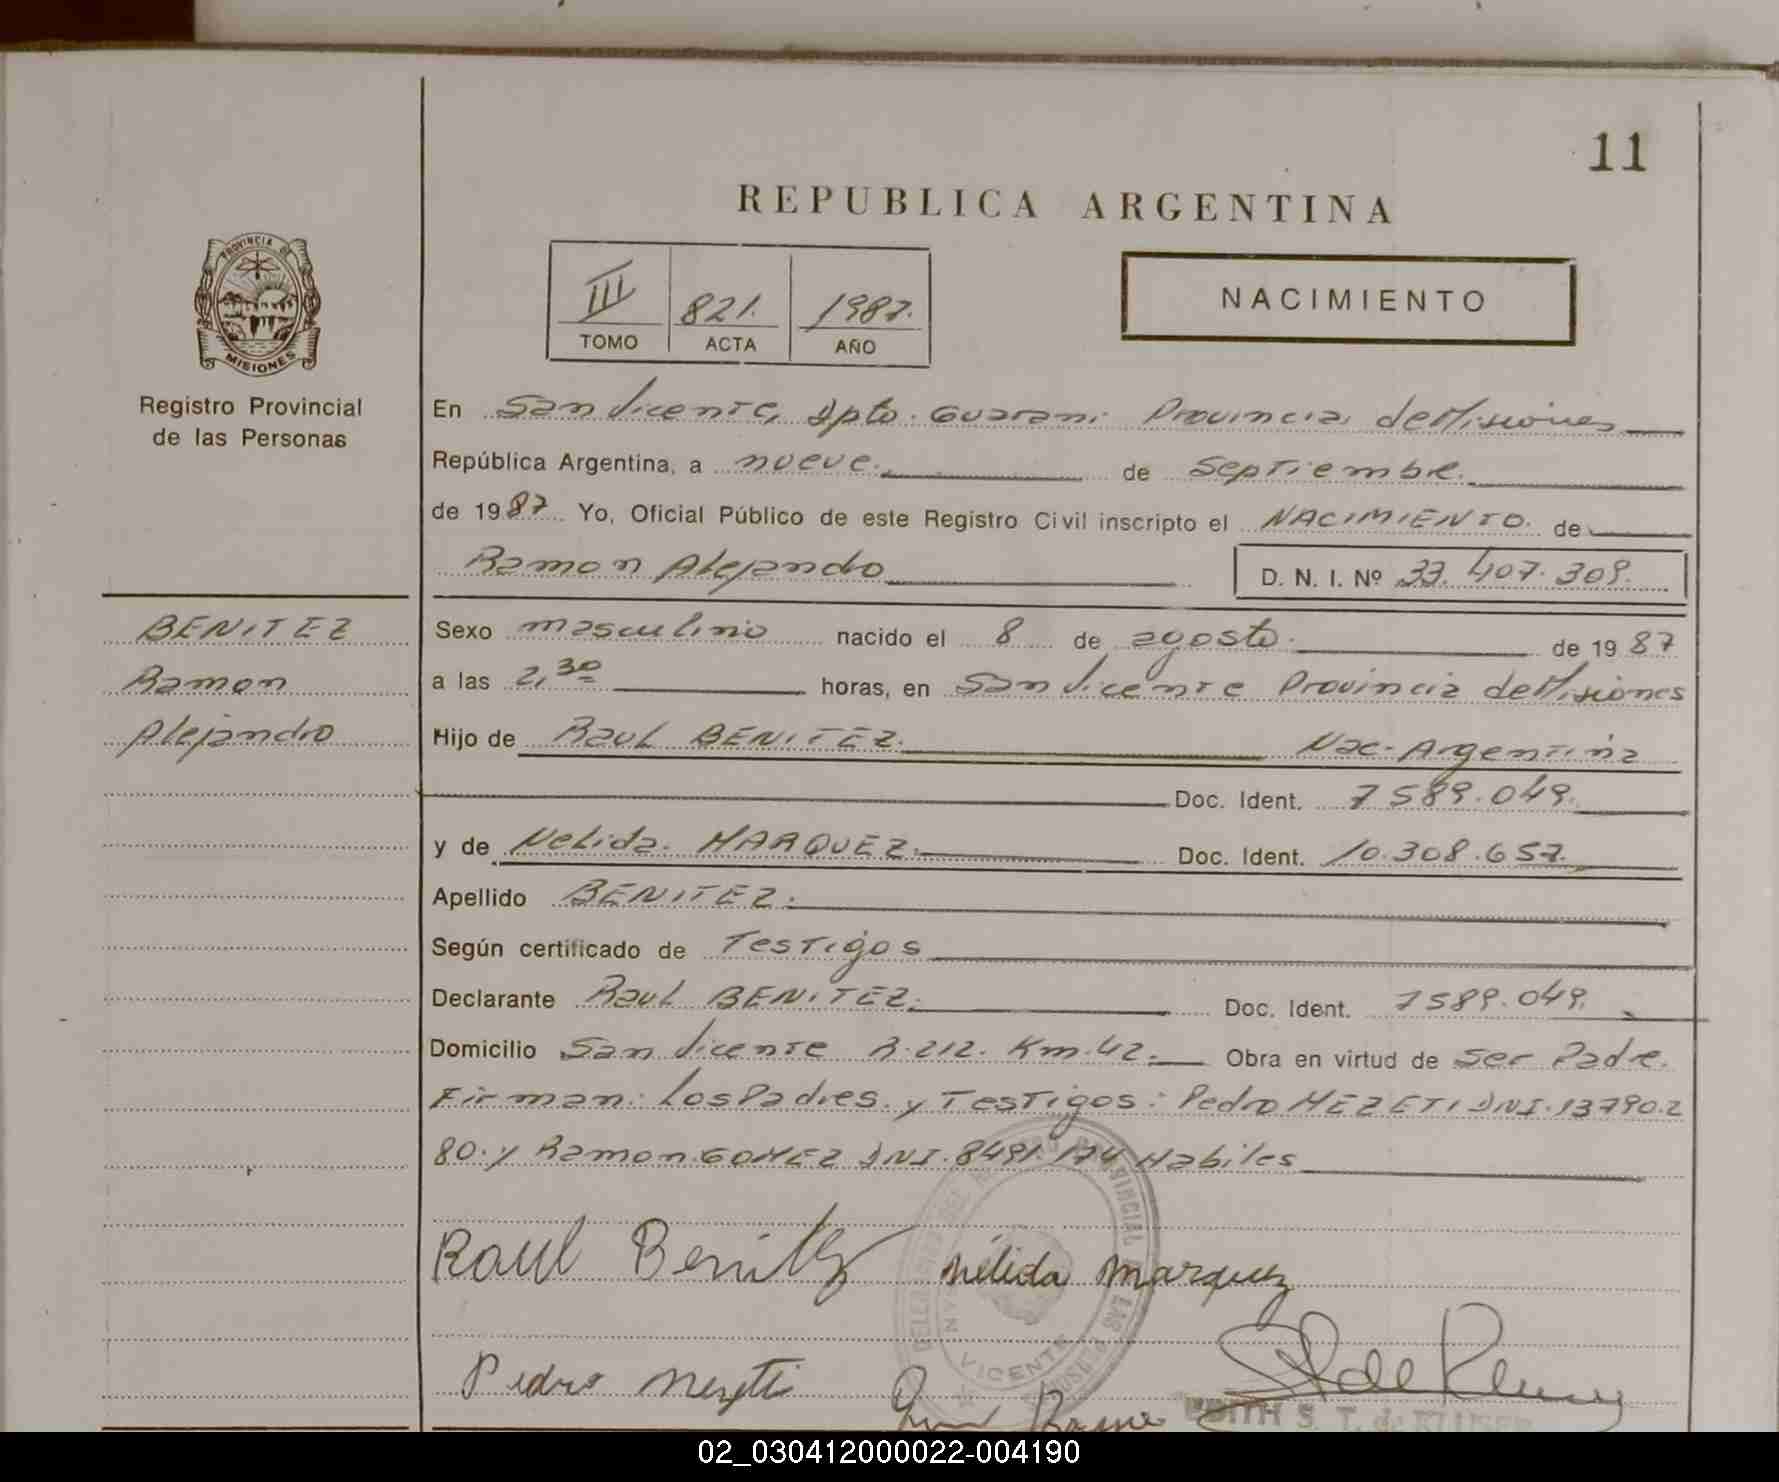 11
REPUBLICA ARGENTINA
PROVINCIA DE
MISIONES
III 821. 1987.
TOMO ACTA AÑO
NACIMIENTO
Registro Provincial
de las Personas
En San Vicente, Dpto. Guarani Provincia de Misiones
República Argentina, a nueve. de Septiembre.
de 1987 Yo, Oficial Público de este Registro Civil inscripto el NACIMIENTO. de
Ramon Alejandro D. N. I. Nº 33.407.309.
BENITEZ
Ramon
Alejandro
Sexo masculino nacido el 8 de agosto. de 1987
a las 2,30 horas, en San Vicente Provincia de Misiones
Hijo de Raul BENITEZ. Nac- Argentina
Doc. Ident. 7589.049.
y de Nelida. MARQUEZ. Doc. Ident. 10.308.657.
Apellido BENITEZ.
Según certificado de Testigos
Declarante Raul BENITEZ. Doc. Ident. 7589.049.
Domicilio San Vicente R.212. Km.42. Obra en virtud de ser Padre.
Firman: Los Padres. y Testigos: Pedro MEZETI DNI.13790.2
80. y Ramon GOMEZ DNI.8491.174 Habiles
Raul Benitez Nélida Marquez
Pedro
VICENTE
EDITH S. T. de KLUSER
02_030412000022-004190